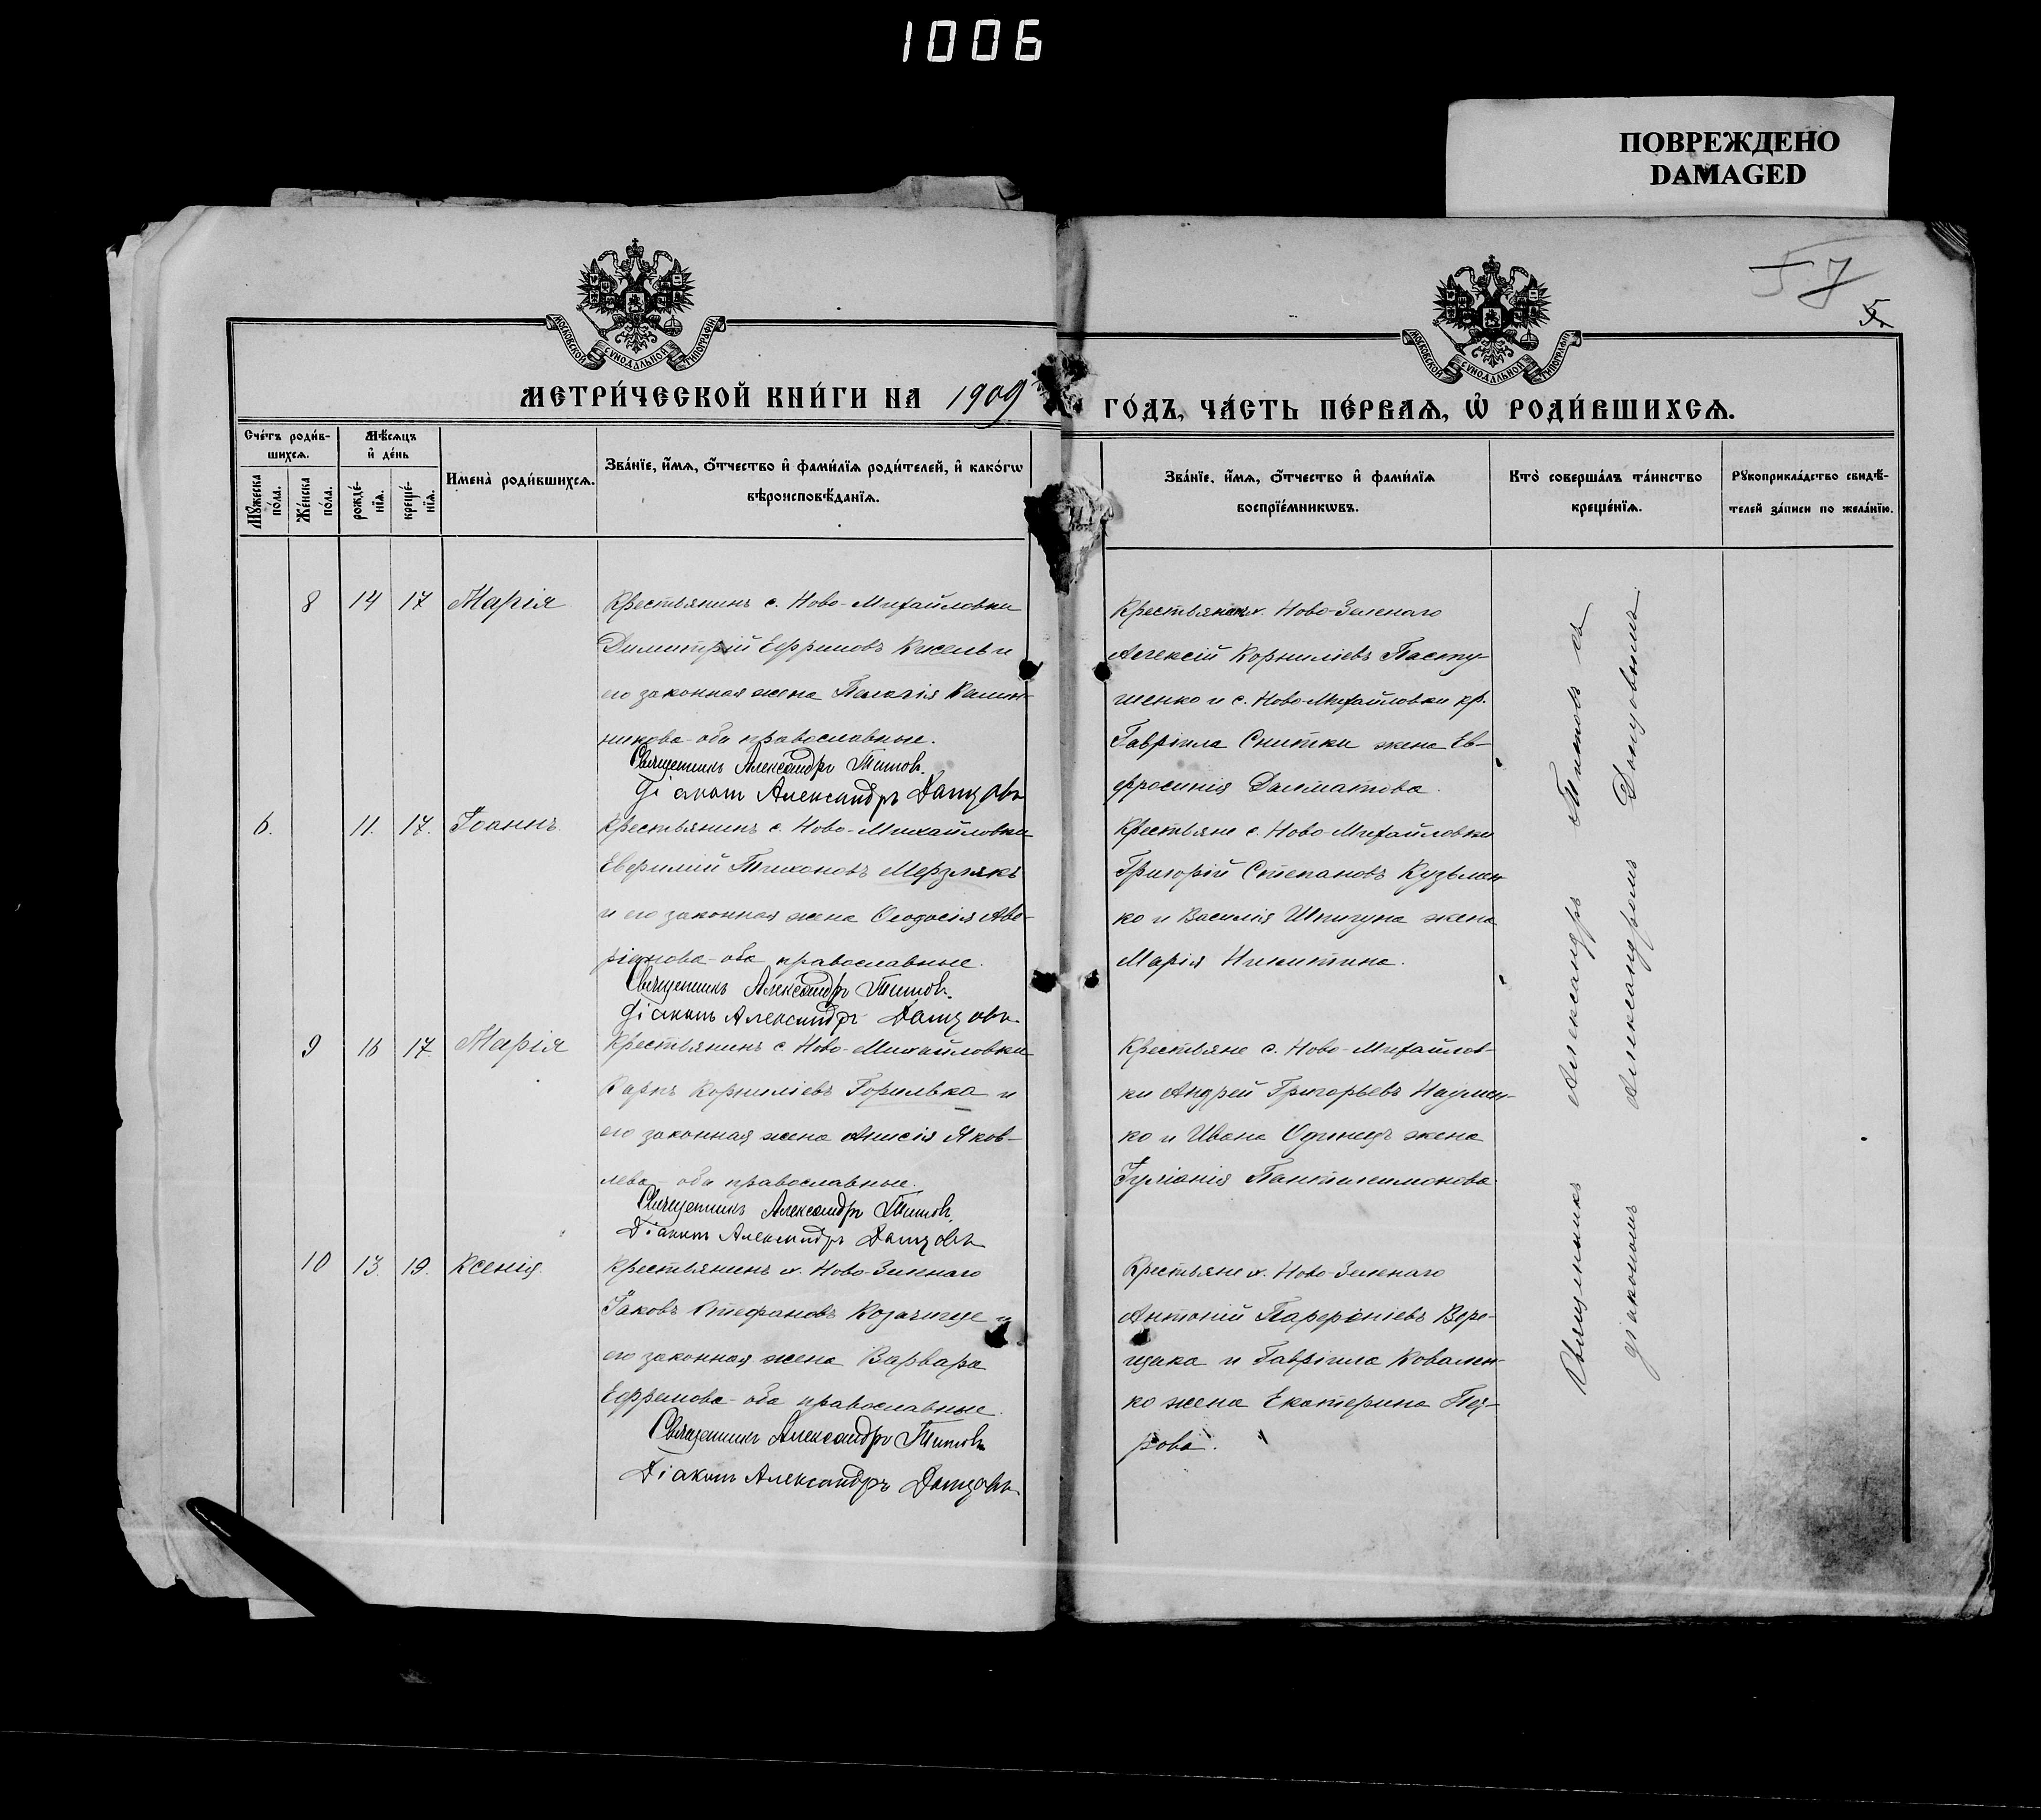 1006
ПОВРЕЖДЕНО
DAMAGED
57
5.
МОСКОВСКОЙ СѴНОДАЛЬНОЙ ТИПОГРАФІИ
МОСКОВСКОЙ СѴНОДАЛЬНОЙ ТИПОГРАФІИ
МЕТРИ́ЧЕСКОЙ КНИ́ГИ НА 1909
ГО́ДЪ, ЧА́СТЬ ПЕ́РВАѦ, Ѡ҆ РОДИ́ВШИХСѦ.
Сче́тъ роди́в-
шихсѧ.
Мꙋ́жеска по́ла.
Же́нска по́ла.
Мѣ́сѧцъ
и҆ де́нь
рожде́-
нїѧ.
креще́-
нїѧ.
Имена̀ роди́вшихсѧ.
Зва́нїе, и҆́мѧ, ѻ҆́тчество и҆ фами́лїѧ роди́телей, и҆ како́гѡ
вѣроисповѣ́данїѧ.
Зва́нїе, и҆́мѧ, ѻ҆́тчество и҆ фами́лїѧ
воспрїе́мникѡвъ.
Кто̀ соверша́лъ та́инство
креще́нїѧ.
Рꙋкоприкла́дство свидѣ́-
телей за́писи по жела́нїю.
8 14 17 Марія
Крестьянинъ с. Ново-Михайловки
Димитрій Ефимовъ Кисель и
его законная жена Пелагія Калин-
никова - оба православные.
Священникъ Александръ Титовъ.
Діаконъ Александръ Данцовъ
Крестьянинъ х. Ново-Зеленаго
Алексій Корниліевъ Пасту-
шенко и с. Ново-Михайловки кр.
Гавріила Снитки жена Ев-
фросинія Далматова.
6. 11. 17. Іоаннъ
Крестьянинъ с. Ново-Михайловки
Евфимій Тихоновъ Мерзлякъ
и его законная жена Ѳеодосія Аве-
ріанова - оба православные.
Священникъ Александръ Титовъ.
Діаконъ Александръ Данцовъ.
Крестьяне с. Ново-Михайловки
Григорій Степановъ Кузьмен-
ко и Василія Шпигуна жена
Марія Никитина.
9 16 17 Марія
Крестьянинъ с. Ново-Михайловки
Карпъ Корниліевъ Горилька и
его законная жена Анисія Яков-
лева - оба православные.
Священникъ Александръ Титовъ.
Діаконъ Александръ Данцовъ
Крестьяне с. Ново-Михайлов-
ки Андрей Григорьевъ Наумен-
ко и Ивана Одинецъ жена
Іуліанія Пантилеимонова.
10 13. 19. Ксенія.
Крестьянинъ х. Ново-Зеленаго
Іаковъ Стефановъ и
его законная жена Варвара
Ефремова - оба православные.
Священникъ Александръ Титовъ
Діаконъ Александръ Данцовъ.
Крестьяне х. Ново-Зеленаго
Антоній Парфеніевъ Вере-
щака и Гавріила Ковален-
ко жена Екатерина
рова.
Священникъ Александръ Титовъ съ
діакономъ Александромъ Данцовымъ.